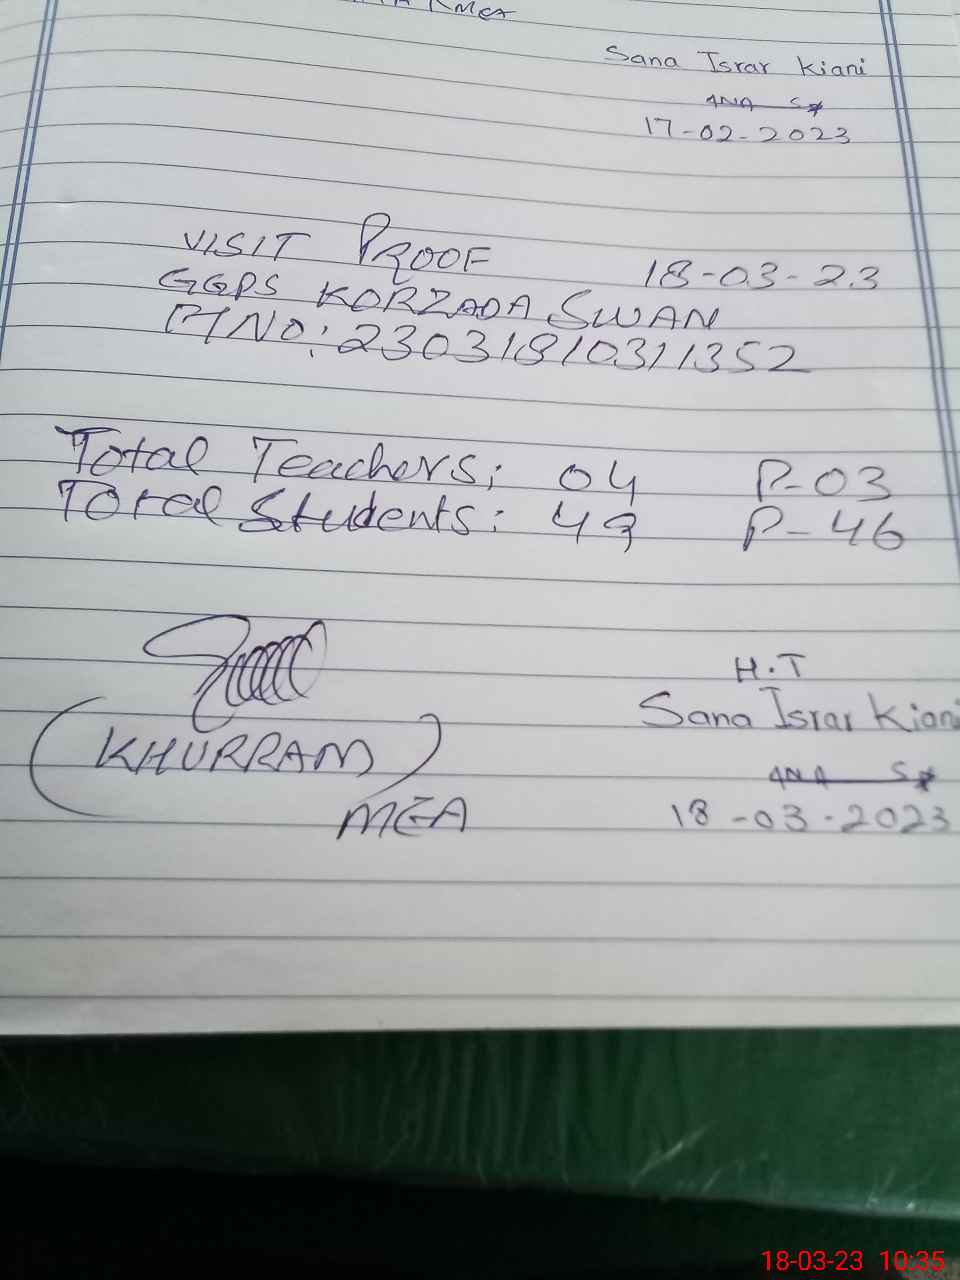 MEA
Sana Israr Kiani
17-02-2023
VISIT PROOF 18-03-23
GGPS KORZADA SWAN
P/NO: 23031810311352
Total Teachers; 04 P-03
Total Students: 49 P-46
H.T
Sana Israr Kiani
(KHURRAM)
MEA
18-03-2023
18-03-23 10:35